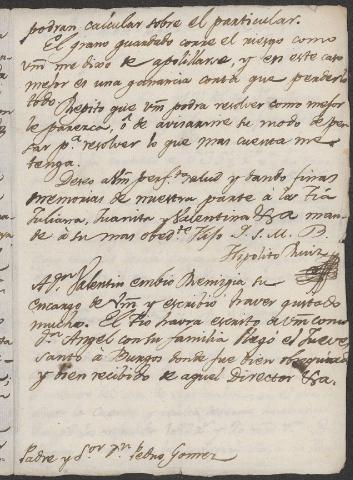 podran calcular sobre el particular.
El grano guardado corre el riesgo como
Vm me dixo de apolillarse, y en este caso
mejor es una ganancia corta que perderlo
todo.
Repito que Vm podra resolver como mejor
le parezca, ó de avisarme su modo de pen
sar pª resolver lo que mas cuenta me
tenga.
Deseo á Vm perfta salud y dando finas
memorias de nuestra parte á la Tia
Juliana, Juanita y Valentina &ca man
de á su mas obedte Hijo Q.S.M.B.
Hipolito Ruiz
A Dn Valentin embió Remigia su
encargo de Vm y escribió haver gustado
mucho. El Tio havra escrito á Vm como
Dn Angel con su familia llegó el Jueves
Santo á Burgos donde fue bien obsequiado
y bien recibido de aquel Director &ca.
Padre y Sor Dn Pedro Gomez